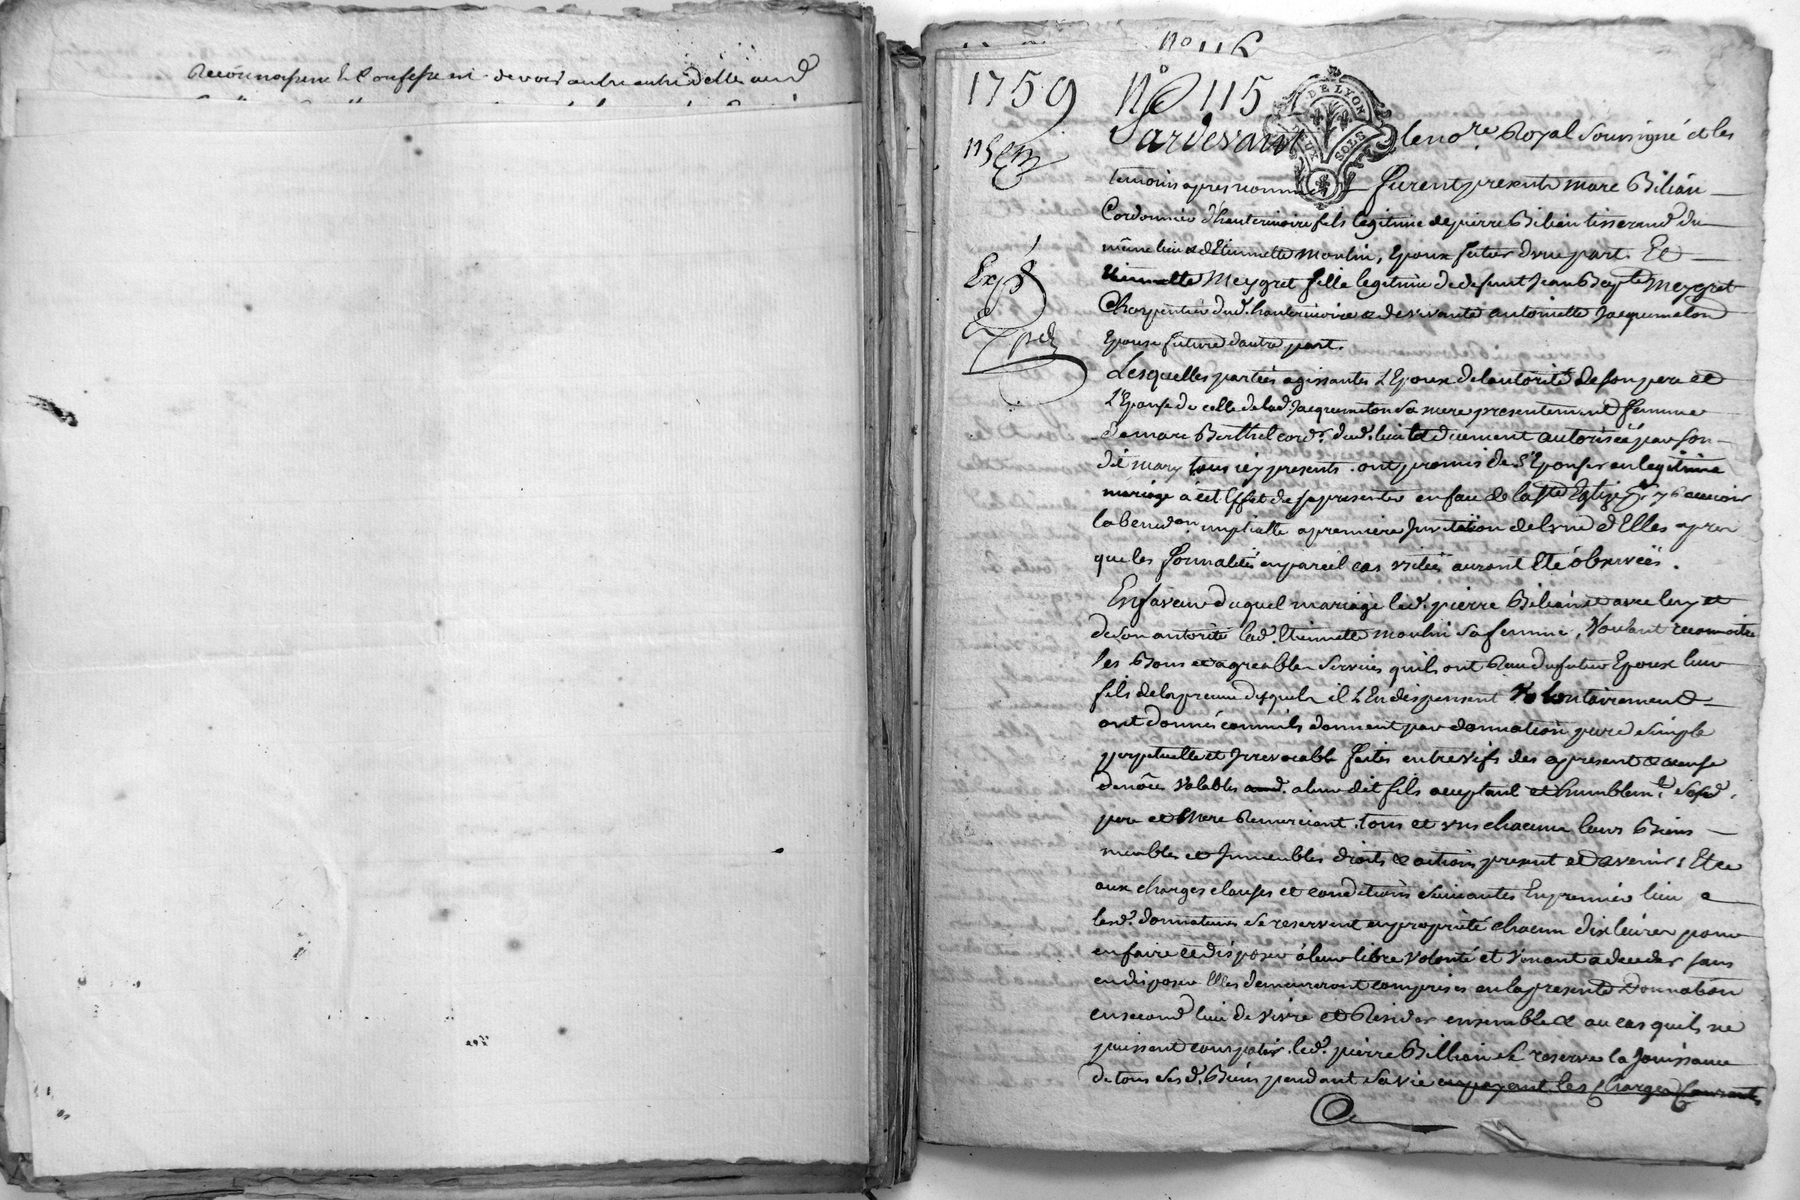 Reconnoissent & Confessent devoir autre outre d'elle aud
No 116
1759
No 115
11 8bre
DE LYON
DEUX SOLS
Pardevant le nore. Royal soussigné et les
temoins apres nommés furent presents marc Bilian
Cordonnier d'hauterivoire fils legitime de pierre Bilian tisserand du
même lieu & d'Etiennette moulin, Epoux futur d'une part. Et
Etiennette Meygret fille legitime de defunt Jean Bapte meygret
Charpentier dud. hauterivoire & de vivante antoinette Jacqumeton
Epouse future d'autre part.
Expé
Lesquelles parties agissantes L'Epoux de l'autorité de son pere et
L'Epouse de celle de lad. Jacqumeton sa mere presentement femme
de marc Berthel cordr. dud. lieu et duement autorisée par son
dit mary tous icy presents. ont promis de s'Epouser en legitime
mariage à cet Effet de se presenter en face de la ste Eglise pr y recevoir
la benedon nuptialle a premiere Invitation de l'une d'Elles apres
que les formalités en pareil cas usitées auront Eté observées.
En faveur duquel mariage led. pierre Bilian et avec luy et
de son autorité lad. Etiennette moulin sa femme, Voulant reconnoitre
les Bons et agreables services qu'ils ont Reçu du futur Epoux leur
fils de la preuve desquels il L'En dispensent Volontairement
ont donné comm'ils donnent par donnation pure simple
perpetuelle et Irrevocable faite entre vifs des apresent & a cause
de nôces Valables aud. a leur dit fils acceptant et humblemt. sesd.
pere et Mere Remerciant. tous et uns chacuns leurs Biens
meubles et Immeubles droits & actions present et avenir: Et ce
aux charges clauses et conditions suivantes En premier lieu
lesd. donnateurs se reservent en proprieté chacun dix livres pour
en faire et disposer à leur libre Volonté et Venant a deceder sans
en disposer Elles demeureront comprises en la presente Donnation
en second lieu de vivre et Resider ensemble & au cas qu'ils ne
puissent compatir. led. pierre Billian se reserve la Jouissance
de tous ses d. Biens pendant sa vie en payant les Charges Courantes